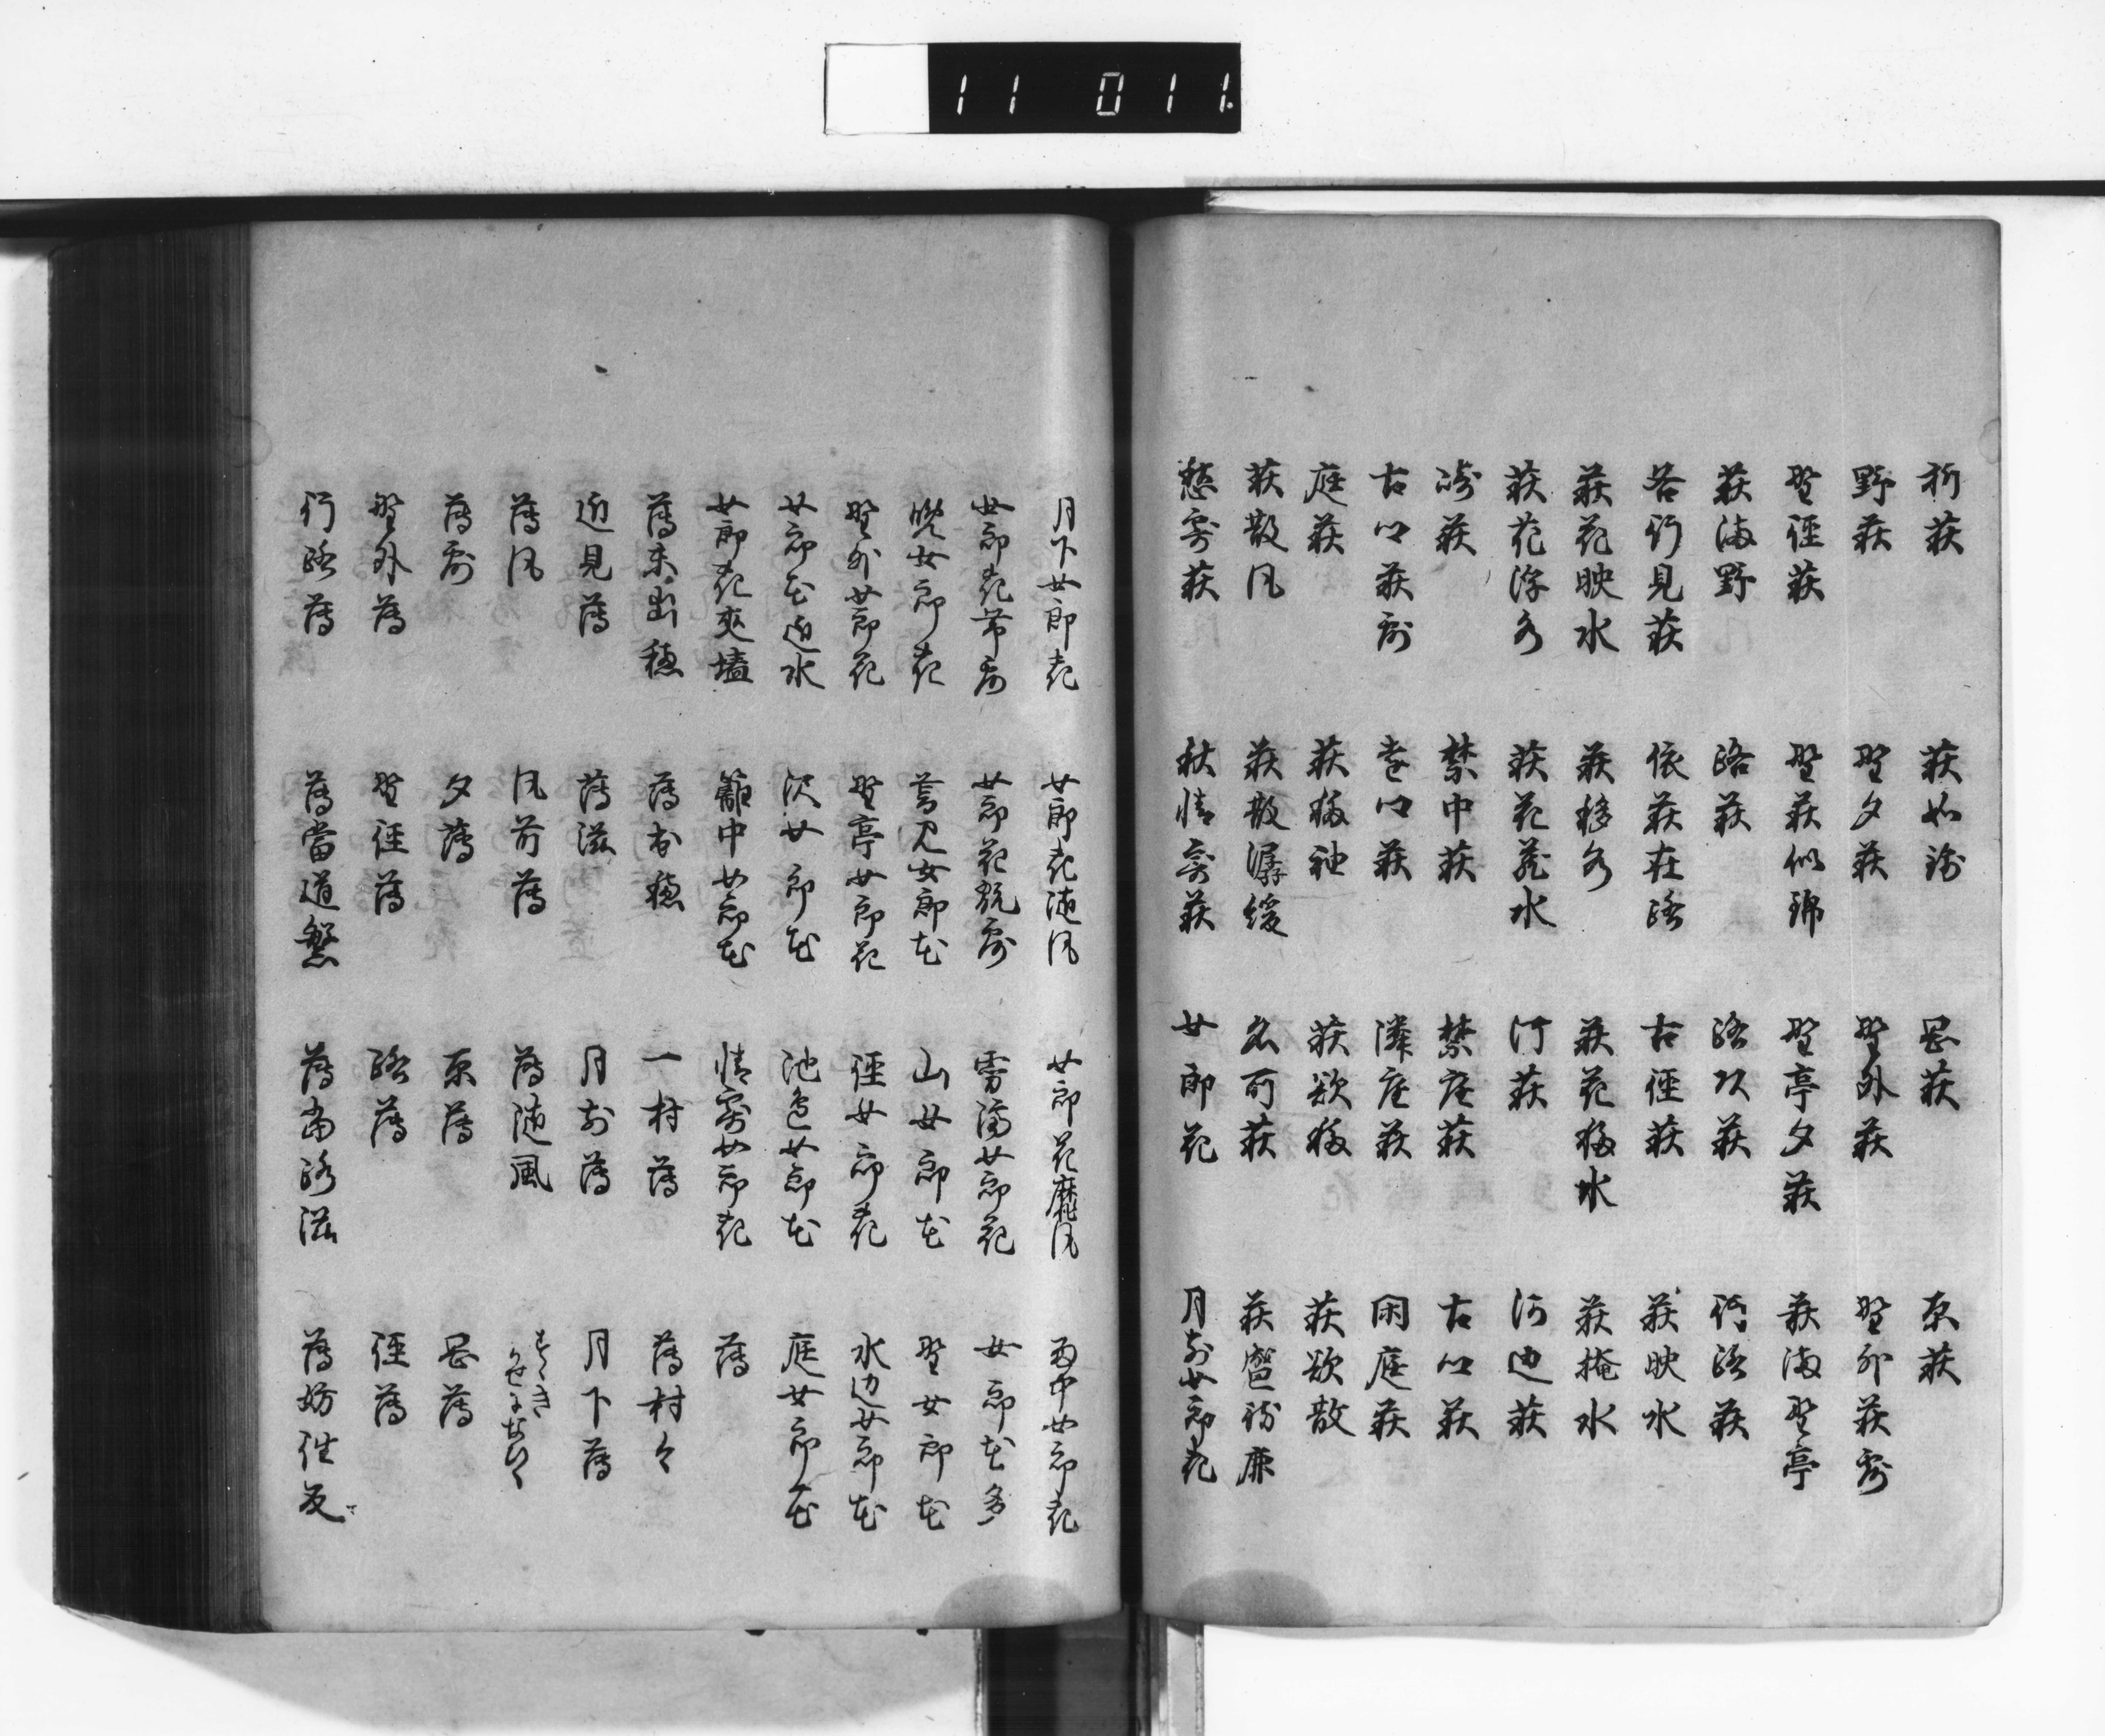 11 011
折萩 萩如錦 岡萩 原萩
野萩 野夕萩 野外萩 野外萩露
野径萩 野萩似錦 野亭夕萩 萩満野亭
萩満野 路萩 路次萩 行路萩
各行見萩 依萩在路 古径萩 萩映水
萩花映水 萩移水 萩花移水 萩掩水
萩花浮水 萩花蔵水 汀萩 河辺萩
萩 禁中萩 禁庭萩 古郷萩
古郷萩露 萩 隣庭萩 閑庭萩
庭萩 萩移袖 萩欲移 萩欲散
萩散風 萩散潺湲 名所萩 萩盛待鹿
愁寄萩 秋情寄萩 女郎花 月前女郎花
月下女郎花 女郎花随風 女郎花靡風 雨中女郎花
女郎花帯露 女郎花露 雲 女郎花 女郎花多
暁女郎花 女郎花 山女郎花 野女郎花
野外女郎花 野亭女郎花 径女郎花 水辺女郎花
女郎花近水 沢女郎花 池辺女郎花 庭女郎花
女郎花夾墻 籬中女郎花 情寄女郎花 薄
薄未出穂 薄出穂 一村薄 薄村々
近見薄 薄滋 月前薄 月下薄
薄風 風前薄 薄随風 すゝきかせになひく
薄露 夕薄 原薄 岡薄
野外薄 野径薄 路薄 径薄
行路薄 薄当道繁 薄当路滋 薄妨往反